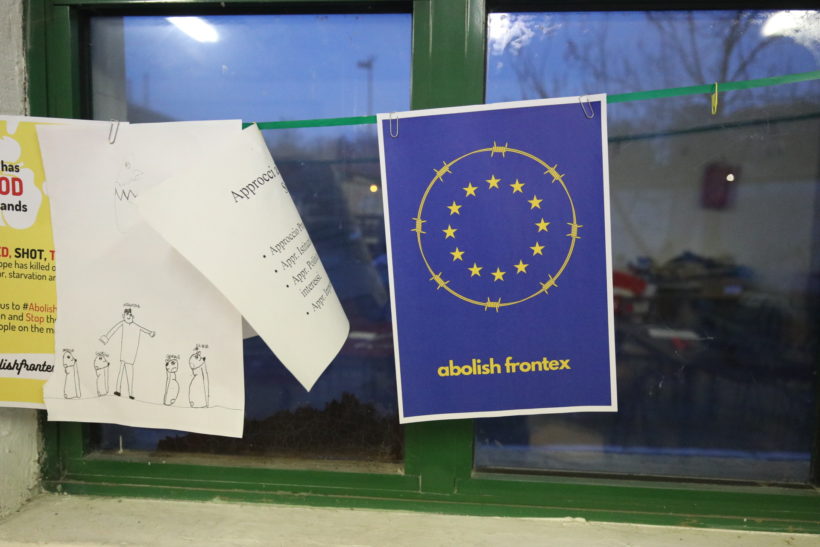 has
OD
ands
ED, SHOT,
ope has killed
ar. starvation
us to #Abolish
n and Stop
ople on the
lishfrontex
Approcci
Approccio
Appr. Istit
Appr. Poli
interess
Appr.
abolish frontex